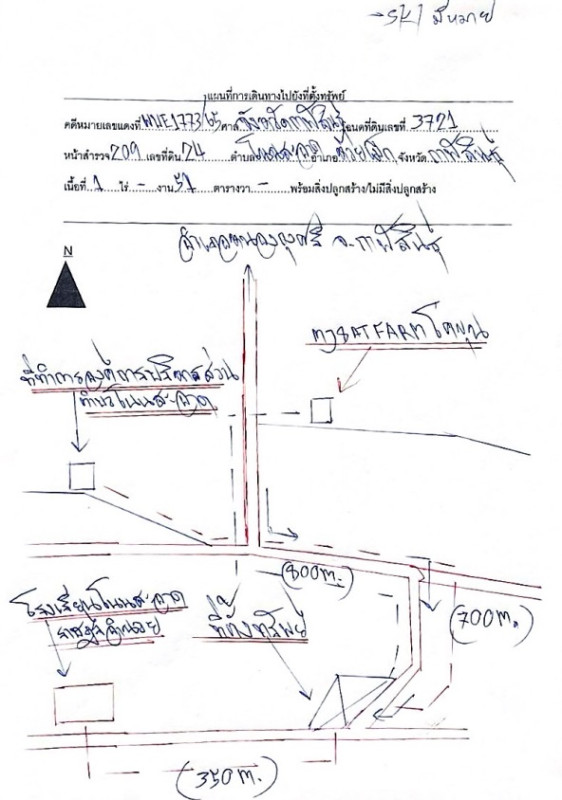 →SKI มีหมาย
แผนที่การเดินทางไปยังที่ตั้งทรัพย์
คดีหมายเลขแดงที่ ผบE1773/65 ศาล จังหวัดกาฬสินธุ์ โฉนดที่ดินเลขที่ 3721
หน้าสำรวจ 209 เลขที่ดิน 24 ตำบล โนนสะอาด อำเภอ ห้วยเม็ก จังหวัด กาฬสินธุ์
เนื้อที่ 1 ไร่ - งาน 57 ตารางวา - พร้อมสิ่งปลูกสร้าง/ไม่มีสิ่งปลูกสร้าง
อำเภอหนองกุงศรี จ.กาฬสินธุ์
N
FARM โคขุน
ที่ทำการองค์การบริหารส่วน
ตำบลโนนสะอาด
(800m.)
โรงเรียนโนนสะอาด
ราษฎร์อำนวย
ที่ตั้งทรัพย์
(700m.)
(350m.)